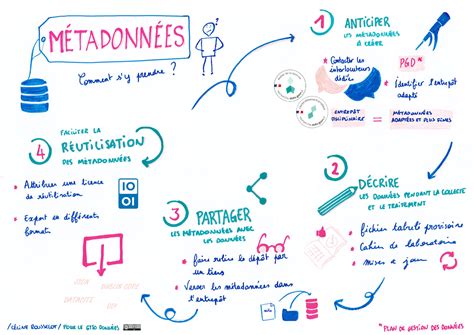 MÉTADONNÉES
Comment s'y prendre ?
1 ANTICIPER
LES MÉTADONNÉES
À CRÉER
* Contacter les
interlocuteurs
dédiés
PGD*
* Identifier l'entrepôt
adapté
ENTREPÔT
DISCIPLINAIRE
=
MÉTADONNÉES
ADAPTÉES ET PLUS FINES
2 DÉCRIRE
LES DONNÉES PENDANT LA COLLECTE
ET LE TRAITEMENT
* fichier tabulé provisoire
* Cahier de laboratoire
* Mises à jour
3 PARTAGER
LES MÉTADONNÉES AVEC
LES DONNÉES
* faire relire le dépôt par
un tiers
* Verser les métadonnées dans
l'entrepôt
4 FACILITER LA
RÉUTILISATION
DES MÉTADONNÉES
* Attribuer une licence
de réutilisation
* Export en différents
formats
JSON
DUBLIN CORE
DATACITE
DDI
/CÉLINE ROUSSELOT/ POUR LE GTSO DONNÉES
*PLAN DE GESTION DES DONNÉES